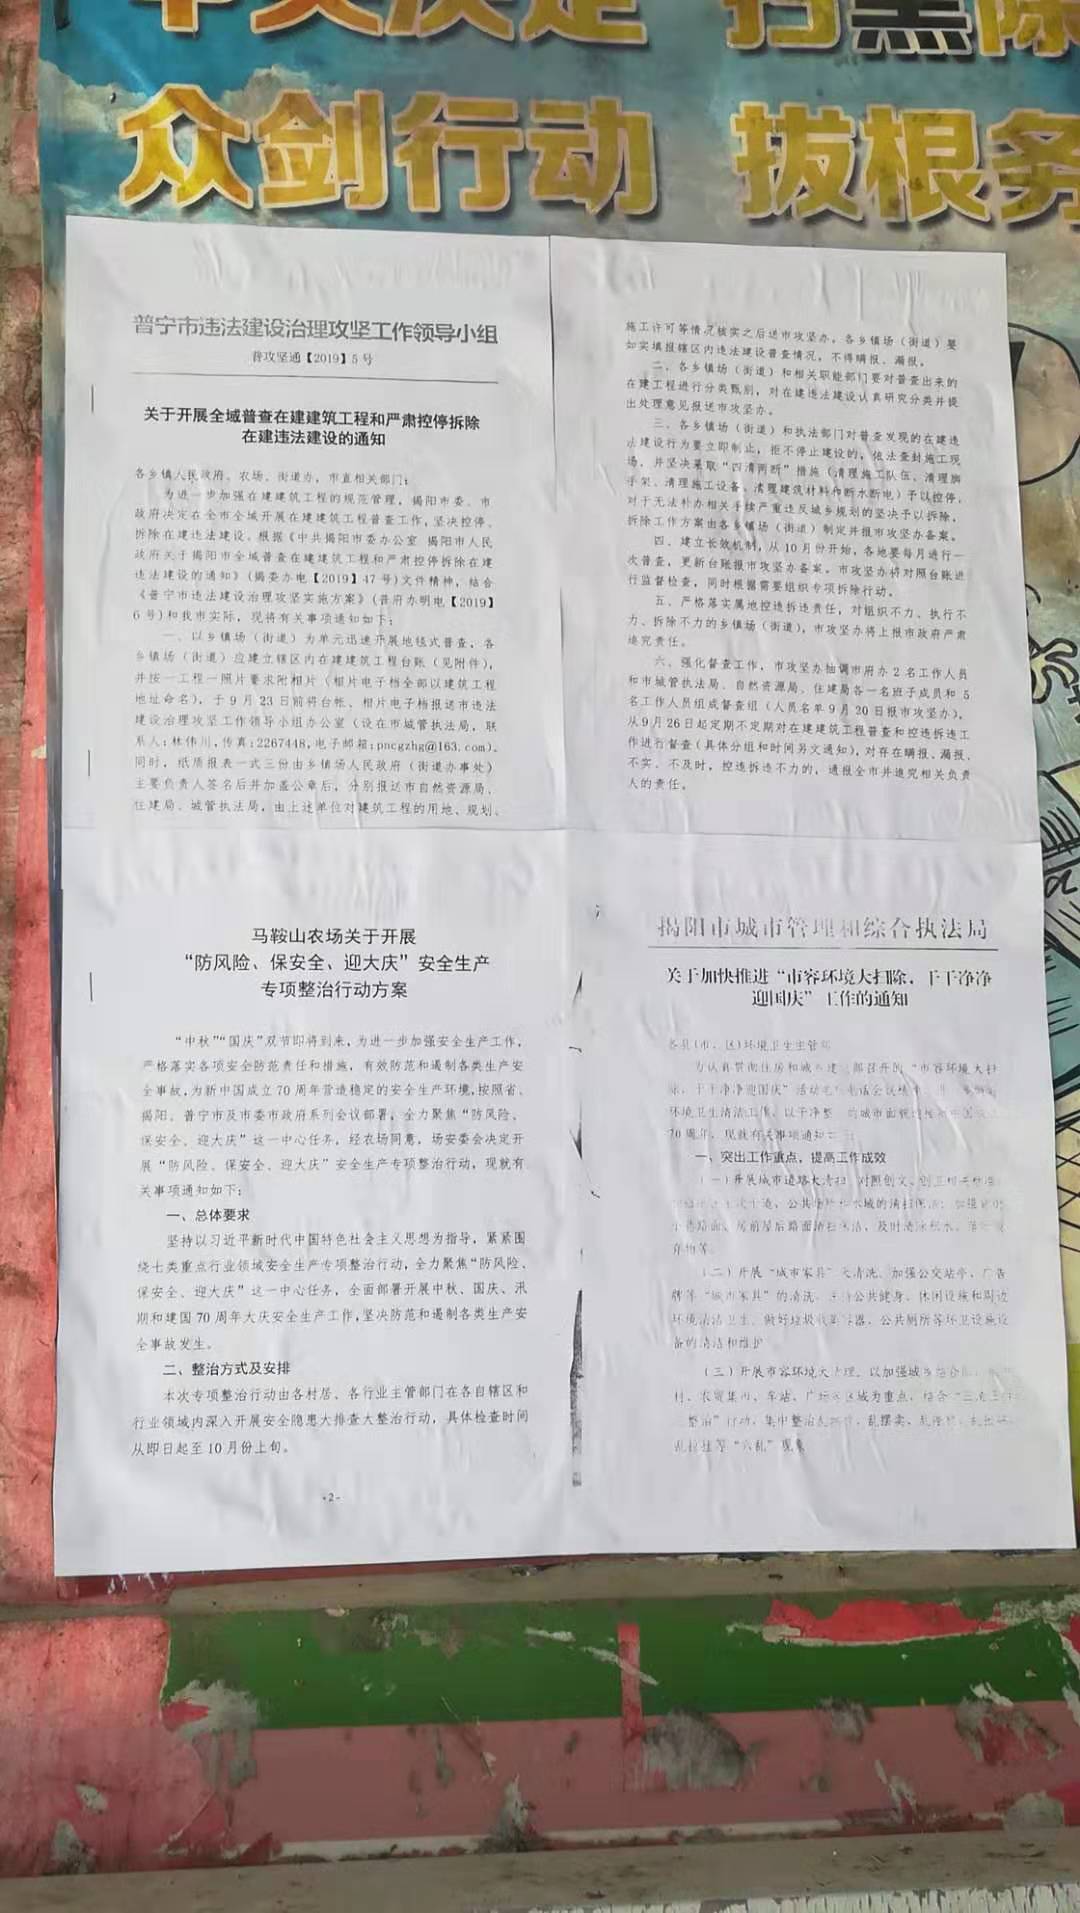 扫黑除
众剑行动 拔根务
普宁市违法建设治理攻坚工作领导小组
普攻坚通【2019】5号
关于开展全域普查在建建筑工程和严肃控停拆除
在建违法建设的通知
各乡镇人民政府、农场、街道办，市直相关部门：
为进一步加强在建建筑工程的规范管理，揭阳市委、市
政府决定在全市全域开展在建建筑工程普查工作，坚决控停、
拆除在建违法建设。根据《中共揭阳市委办公室 揭阳市人民
政府关于揭阳市全域普查在建建筑工程和严肃控停拆除在建
违法建设的通知》(揭委办电【2019】47号)文件精神，结合
《普宁市违法建设治理攻坚实施方案》(普府办明电【2019】
6号)和我市实际，现将有关事项通知如下：
一、以乡镇场（街道）为单元迅速开展地毯式普查，各
乡镇场（街道）应建立辖区内在建建筑工程台账（见附件），
并按一工程一照片要求附相片（相片电子档全部以建筑工程
地址命名），于9月23日前将台帐、相片电子档报送市违法
建设治理攻坚工作领导小组办公室（设在市城管执法局，联
系人：林伟川，传真：2267448，电子邮箱：pncgzhg@163.com)。
同时，纸质报表一式三份由乡镇场人民政府（街道办事处）
主要负责人签名后并加盖公章后，分别报送市自然资源局、
住建局、城管执法局，由上述单位对建筑工程的用地、规划、
施工许可等情况核实之后送市攻坚办。各乡镇场（街道）要
如实填报辖区内违法建设普查情况，不得瞒报、漏报。
二、各乡镇场（街道）和相关职能部门要对普查出来的
在建工程进行分类甄别，对在建违法建设认真研究分类并提
出处理意见报送市攻坚办。
三、各乡镇场（街道）和执法部门对普查发现的在建违
法建设行为要立即制止，拒不停止建设的，依法查封施工现
场，并坚决采取“四清两断”措施（清理施工队伍、清理脚
手架、清理施工设备、清理建筑材料和断水断电）予以控停，
对于无法补办相关手续严重违反城乡规划的坚决予以拆除，
拆除工作方案由各乡镇场（街道）制定并报市攻坚办备案。
四、建立长效机制，从10月份开始，各地要每月进行一
次普查，更新台账报市攻坚办备案。市攻坚办将对照台账进
行监督检查，同时根据需要组织专项拆除行动。
五、严格落实属地控违拆违责任，对组织不力、执行不
力、拆除不力的乡镇场（街道），市攻坚办将上报市政府严肃
追究责任。
六、强化督查工作，市攻坚办抽调市府办2名工作人员
和市城管执法局、自然资源局、住建局各一名班子成员和5
名工作人员组成督查组（人员名单9月20日报市攻坚办），
从9月26日起定期不定期对在建建筑工程普查和控违拆违工
作进行督查（具体分组和时间另文通知），对存在瞒报、漏报、
不实、不及时，控违拆违不力的，通报全市并追究相关负责
人的责任。
马鞍山农场关于开展
“防风险、保安全、迎大庆”安全生产
专项整治行动方案
“中秋”“国庆”双节即将到来，为进一步加强安全生产工作，
严格落实各项安全防范责任和措施，有效防范和遏制各类生产安
全事故，为新中国成立70周年营造稳定的安全生产环境，按照省、
揭阳、普宁市及市委市政府系列会议部署，全力聚焦“防风险、
保安全、迎大庆”这一中心任务，经农场同意，场安委会决定开
展“防风险、保安全、迎大庆”安全生产专项整治行动，现就有
关事项通知如下：
一、总体要求
坚持以习近平新时代中国特色社会主义思想为指导，紧紧围
绕七类重点行业领域安全生产专项整治行动，全力聚焦“防风险、
保安全、迎大庆”这一中心任务，全面部署开展中秋、国庆、汛
期和建国70周年大庆安全生产工作，坚决防范和遏制各类生产安
全事故发生。
二、整治方式及安排
本次专项整治行动由各村居、各行业主管部门在各自辖区和
行业领域内深入开展安全隐患大排查大整治行动，具体检查时间
从即日起至10月份上旬。
-2-
揭阳市城市管理和综合执法局
关于加快推进“市容环境大扫除，干干净净
迎国庆”工作的通知
各县(市、区)环境卫生主管部
为认真贯彻住房和城乡建 部召开的“市容环境大扫
除，干干净净迎国庆”活动电视电话会议
环境卫生清洁工作，以干净整 的城市面貌
70周年，现就有关事项通知
一、突出工作重点，提高工作成效
（一）开展城市道路大清扫。对照创文、创卫
公共 水域的清扫保洁，加强
路面、房前屋后路面清扫保洁，及时清
存物等。
（二）开展“城市家具”大清洗。加强公交站亭、广告
牌等“城市家具”的清洗， 公共健身、休闲设施和周边
环境清洁卫生，做好垃圾收集容器、公共厕所等环卫设施设
备的清洁和维护。
（三）开展市容环境大 理。以加强城乡结合部、
村、农贸集市、车站、广场 区域为重点，结合
整治”行动，集中整治乱 、乱摆卖、
乱拉挂等“六乱”现象